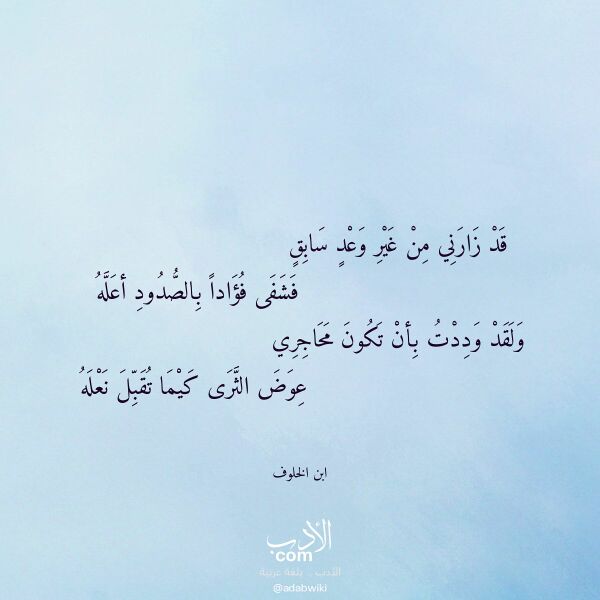 قَدْ زَارَنِي مِنْ غَيْرِ وَعْدٍ سَابِقٍ
فَشَفَى فُؤَاداً بِالصُّدُودِ أعَلَّهُ
وَلَقَدْ وَدِدْتُ بِأنْ تَكُونَ مَحَاجِرِي
عِوَضَ الثَّرَى كَيْمَا تُقَبِّلَ نَعْلَهُ
ابن الخلوف
الأدب
com
الأدب .. بلغة عربية
@adabwiki